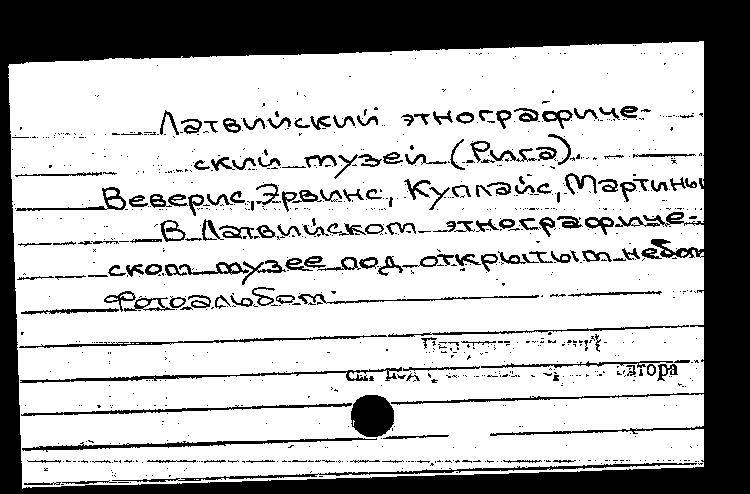 Латвийский этнографиче-
ский музей (Рига).
Веверис, Эрвинс, Куплайс, Мартиньш
В Латвийском этнографиче-
ском музее под открытым небом
Фотоальбом.
см. под автора